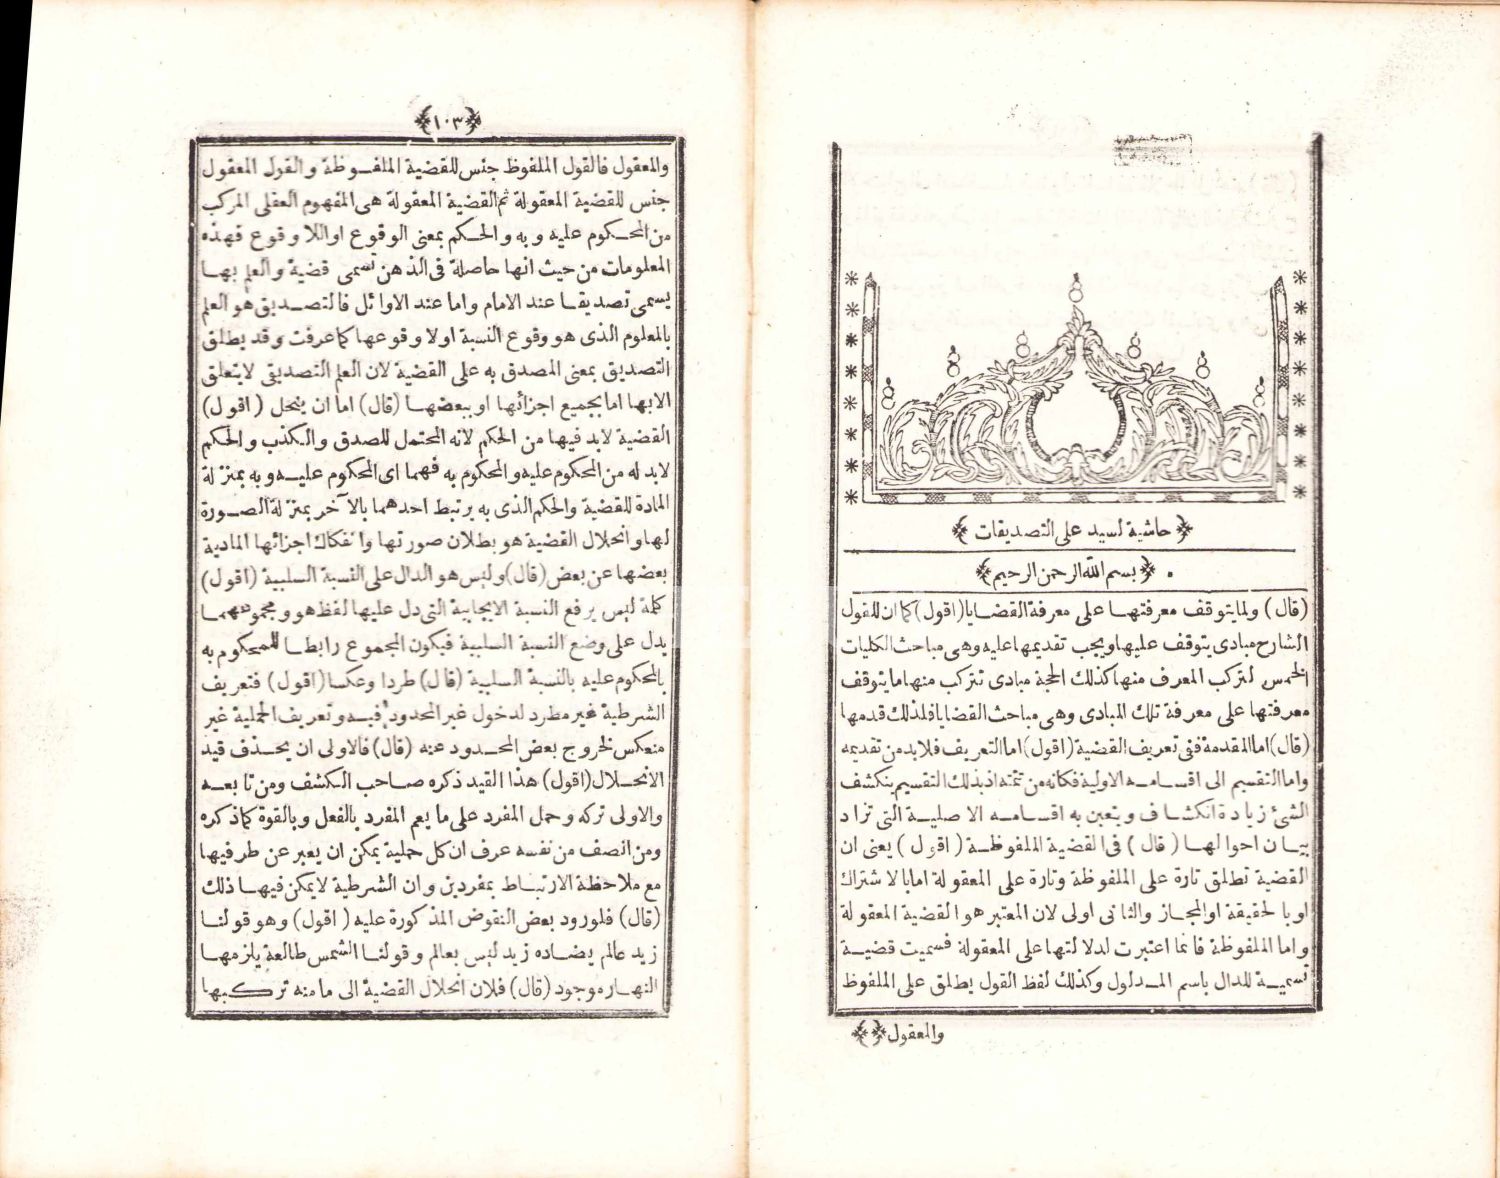 ﴿ حاشية لسيد على التصديقات ﴾
﴿ بسم الله الرحمن الرحيم ﴾
(قال) ولما يتوقف معرفتهـا على معرفة القضايا (اقول) كما ان للقول
الشارح مبادى يتوقف عليها ويجب تقديمها عليه وهى مباحث الكليات
الخمس لتركب المعرف منها كذلك الحجة مبادى تتركب منها ما يتوقف
معرفتها على معرفة تلك المبادى وهى مباحث القضايا فلذلك قدمها
(قال) اما المقدمة ففى تعريف القضية (اقول) اما التعريف فلابد من تقديمه
واما التقسيم الى اقسامه الاولية فكانه من تتمته اذ بذلك التقسيم ينكشف
الشئ زيادة انكشاف ويتعين به اقسامه الاصلية التى تراد
بيان احوالها (قال) فى القضية الملفوظة (اقول) يعنى ان
القضية تطلق تارة على الملفوظة وتارة على المعقولة اما بالاشتراك
او بالحقيقة او المجاز والثانى اولى لان المعتبر هو القضية المعقولة
واما الملفوظة فانما اعتبرت لدلالتها على المعقولة فسميت قضية
تسمية للدال باسم المدلول وكذلك لفظ القول يطلق على الملفوظ
والمعقول
﴿١٠٣﴾
والمعقول فالقول الملفوظ جنس للقضية الملفوظة والقول المعقول
جنس للقضية المعقولة ثم القضية المعقولة هى المفهوم العقلى المركب
من المحكوم عليه وبه والحكم بمعنى الوقوع او اللاوقوع فهذه
المعلومات من حيث انها حاصلة فى الذهن تسمى قضية والعلم بها
يسمى تصديقا عند الامام واما عند الاوائل فالتصديق هو العلم
بالمعلوم الذى هو وقوع النسبة اولا وقوعها كما عرفت وقد يطلق
التصديق بمعنى المصدق به على القضية لان العلم التصديقى لا يتعلق
الا بها اما بجميع اجزائها او ببعضها (قال) اما ان ينحل (اقول)
القضية لابد فيها من الحكم لانه المحتمل للصدق والكذب والحكم
لابد له من المحكوم عليه والمحكوم به فهما اى المحكوم عليه وبه بمنزلة
المادة للقضية والحكم الذى به يرتبط احدهما بالآخر بمنزلة الصورة
لها وانحلال القضية هو بطلان صورتها وانفكاك اجزائها المادية
بعضها عن بعض (قال) وليس هو الدال على النسبة السلبية (اقول)
كلمة ليس يرفع النسبة الايجابية التى دل عليها لفظ هو ومجموعهما
يدل على وضع النسبة السلبية فيكون المجموع رابطا للمحكوم به
بالمحكوم عليه بالنسبة السلبية (قال) طردا وعكسا (اقول) فتعريف
الشرطية غير مطرد لدخول غير المحدود فيه وتعريف الحملية غير
منعكس لخروج بعض المحدود عنه (قال) فالاولى ان يحذف قيد
الانحلال (اقول) هذا القيد ذكره صاحب الكشف ومن تابعه
والاولى تركه وحمل المفرد على ما يعم المفرد بالفعل وبالقوة كما ذكره
ومن انصف من نفسه عرف ان كل حملية يمكن ان يعبر عن طرفيها
مع ملاحظة الارتباط بمفردين وان الشرطية لا يمكن فيها ذلك
(قال) فلورود بعض النقوض المذكورة عليه (اقول) وهو قولنا
زيد عالم يضاده زيد ليس بعالم وقولنا الشمس طالعة يلزمها
النهار موجود (قال) فلان انحلال القضية الى ما منه تركيبها